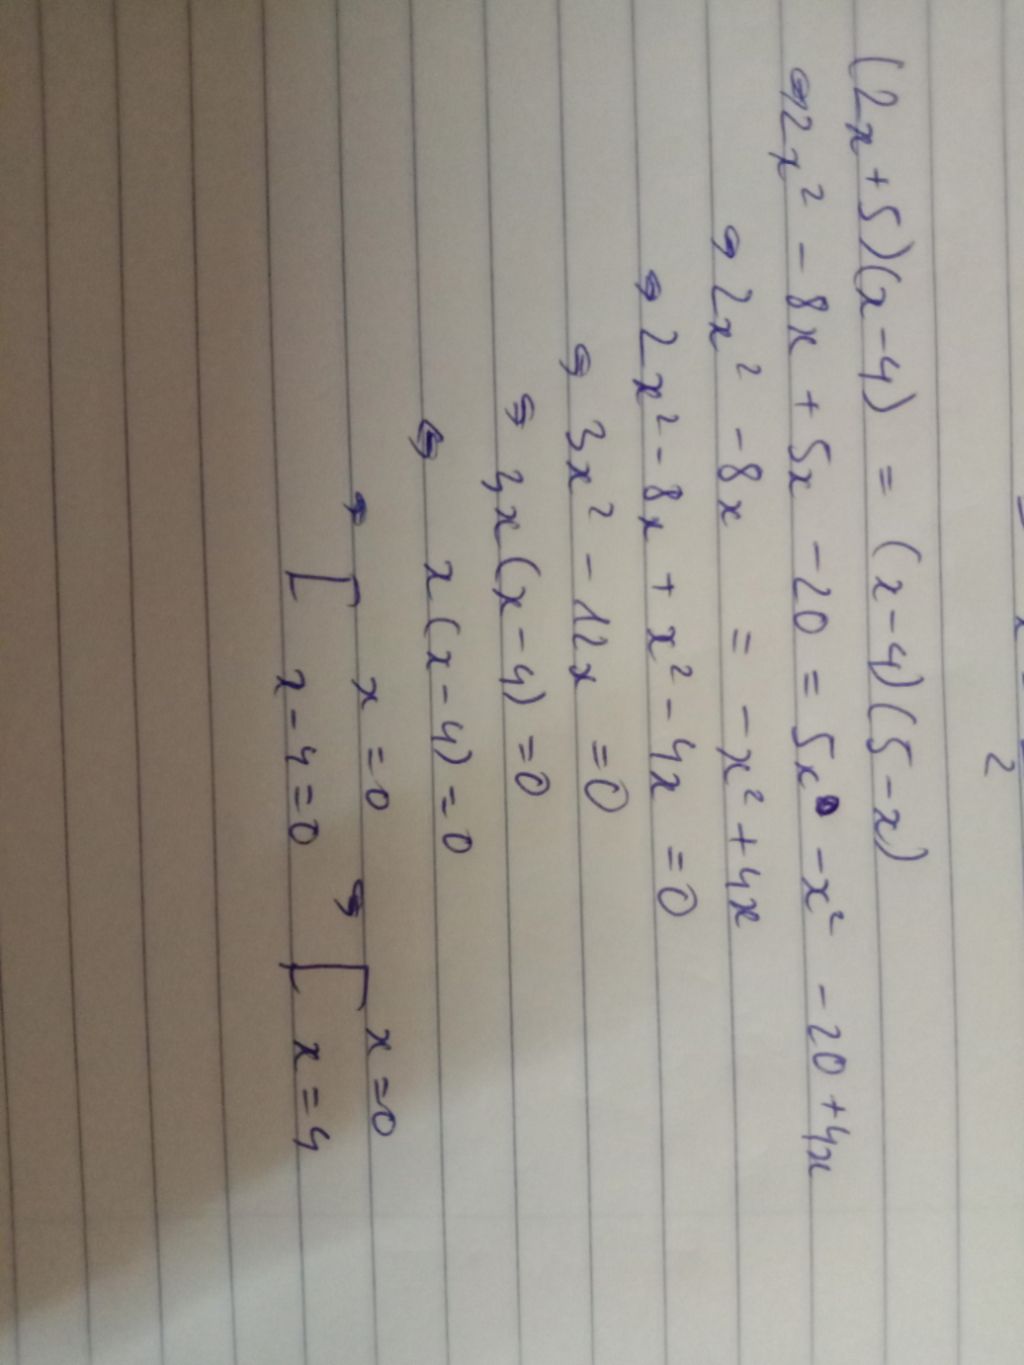 (2x+5)(x-4) = (x-4)(5-x)
⇔ 2x² - 8x + 5x - 20 = 5x - x² - 20 + 4x
⇔ 2x² - 8x = - x² + 4x
⇔ 2x² - 8x + x² - 4x = 0
⇔ 3x² - 12x = 0
⇔ 3x(x-4) = 0
⇔ x(x-4) = 0
⇔ [ x = 0 ⇔ [ x = 0
x - 4 = 0 x = 4
2